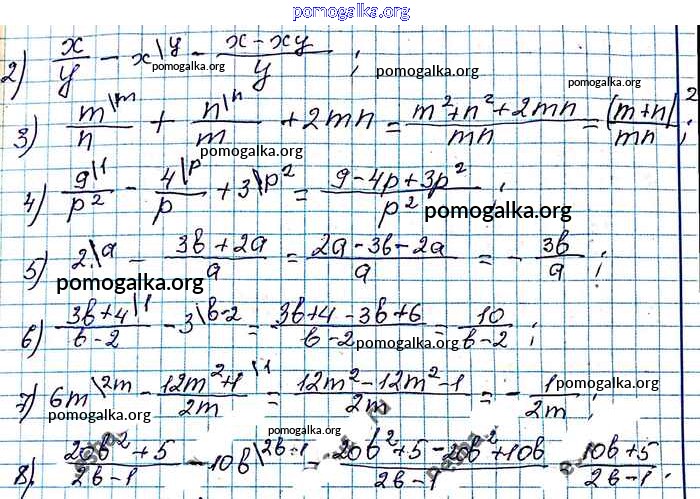 pomogalka.org
2) x/y - x\y - (x-xy)/y ;
pomogalka.org pomogalka.org pomogalka.org
3) m\m/n + n\n/m + 2mn = (m²+n²+2mn)/mn = (m+n)²/mn ;
pomogalka.org
4) 9\1/p² - 4\p/p + 3\p² = (9-4p+3p²)/p² ;
pomogalka.org
5) 2\a - (3b+2a)/a = (2a-3b-2a)/a = - 3b/a ;
pomogalka.org
6) (3b+4)\1/(b-2) - 3\b-2 = (3b+4-3b+6)/(b-2) = 10/(b-2) ;
pomogalka.org
7) 6m\2m - (12m²+1)\1/2m = (12m²-12m²-1)/2m = - 1/2m ;
pomogalka.org pomogalka.org pomogalka.org
8) (20b²+5)/(2b-1) - 10b\2b-1 = (20b²+5-20b²+10b)/(2b-1) = (10b+5)/(2b-1) ;